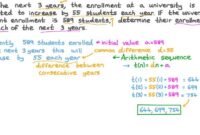 he next 3 years, the enrollment at a university is
ted to increase by 55 students each year. If the
nt enrollment is 589 students, determine their enrollme
ch of the next 3 years.
ently 589 students enrolled → initial value a=589
next 3 years this will
ease by 55 each year ← common difference d=55
difference between consecutive years
Arithmetic sequence
t(n) = dn +
t(1) = 55(1)+589 = 644
t(2) = 55(2)+589 = 699
t(3) = 55(3)+589 = 754
644, 699, 754